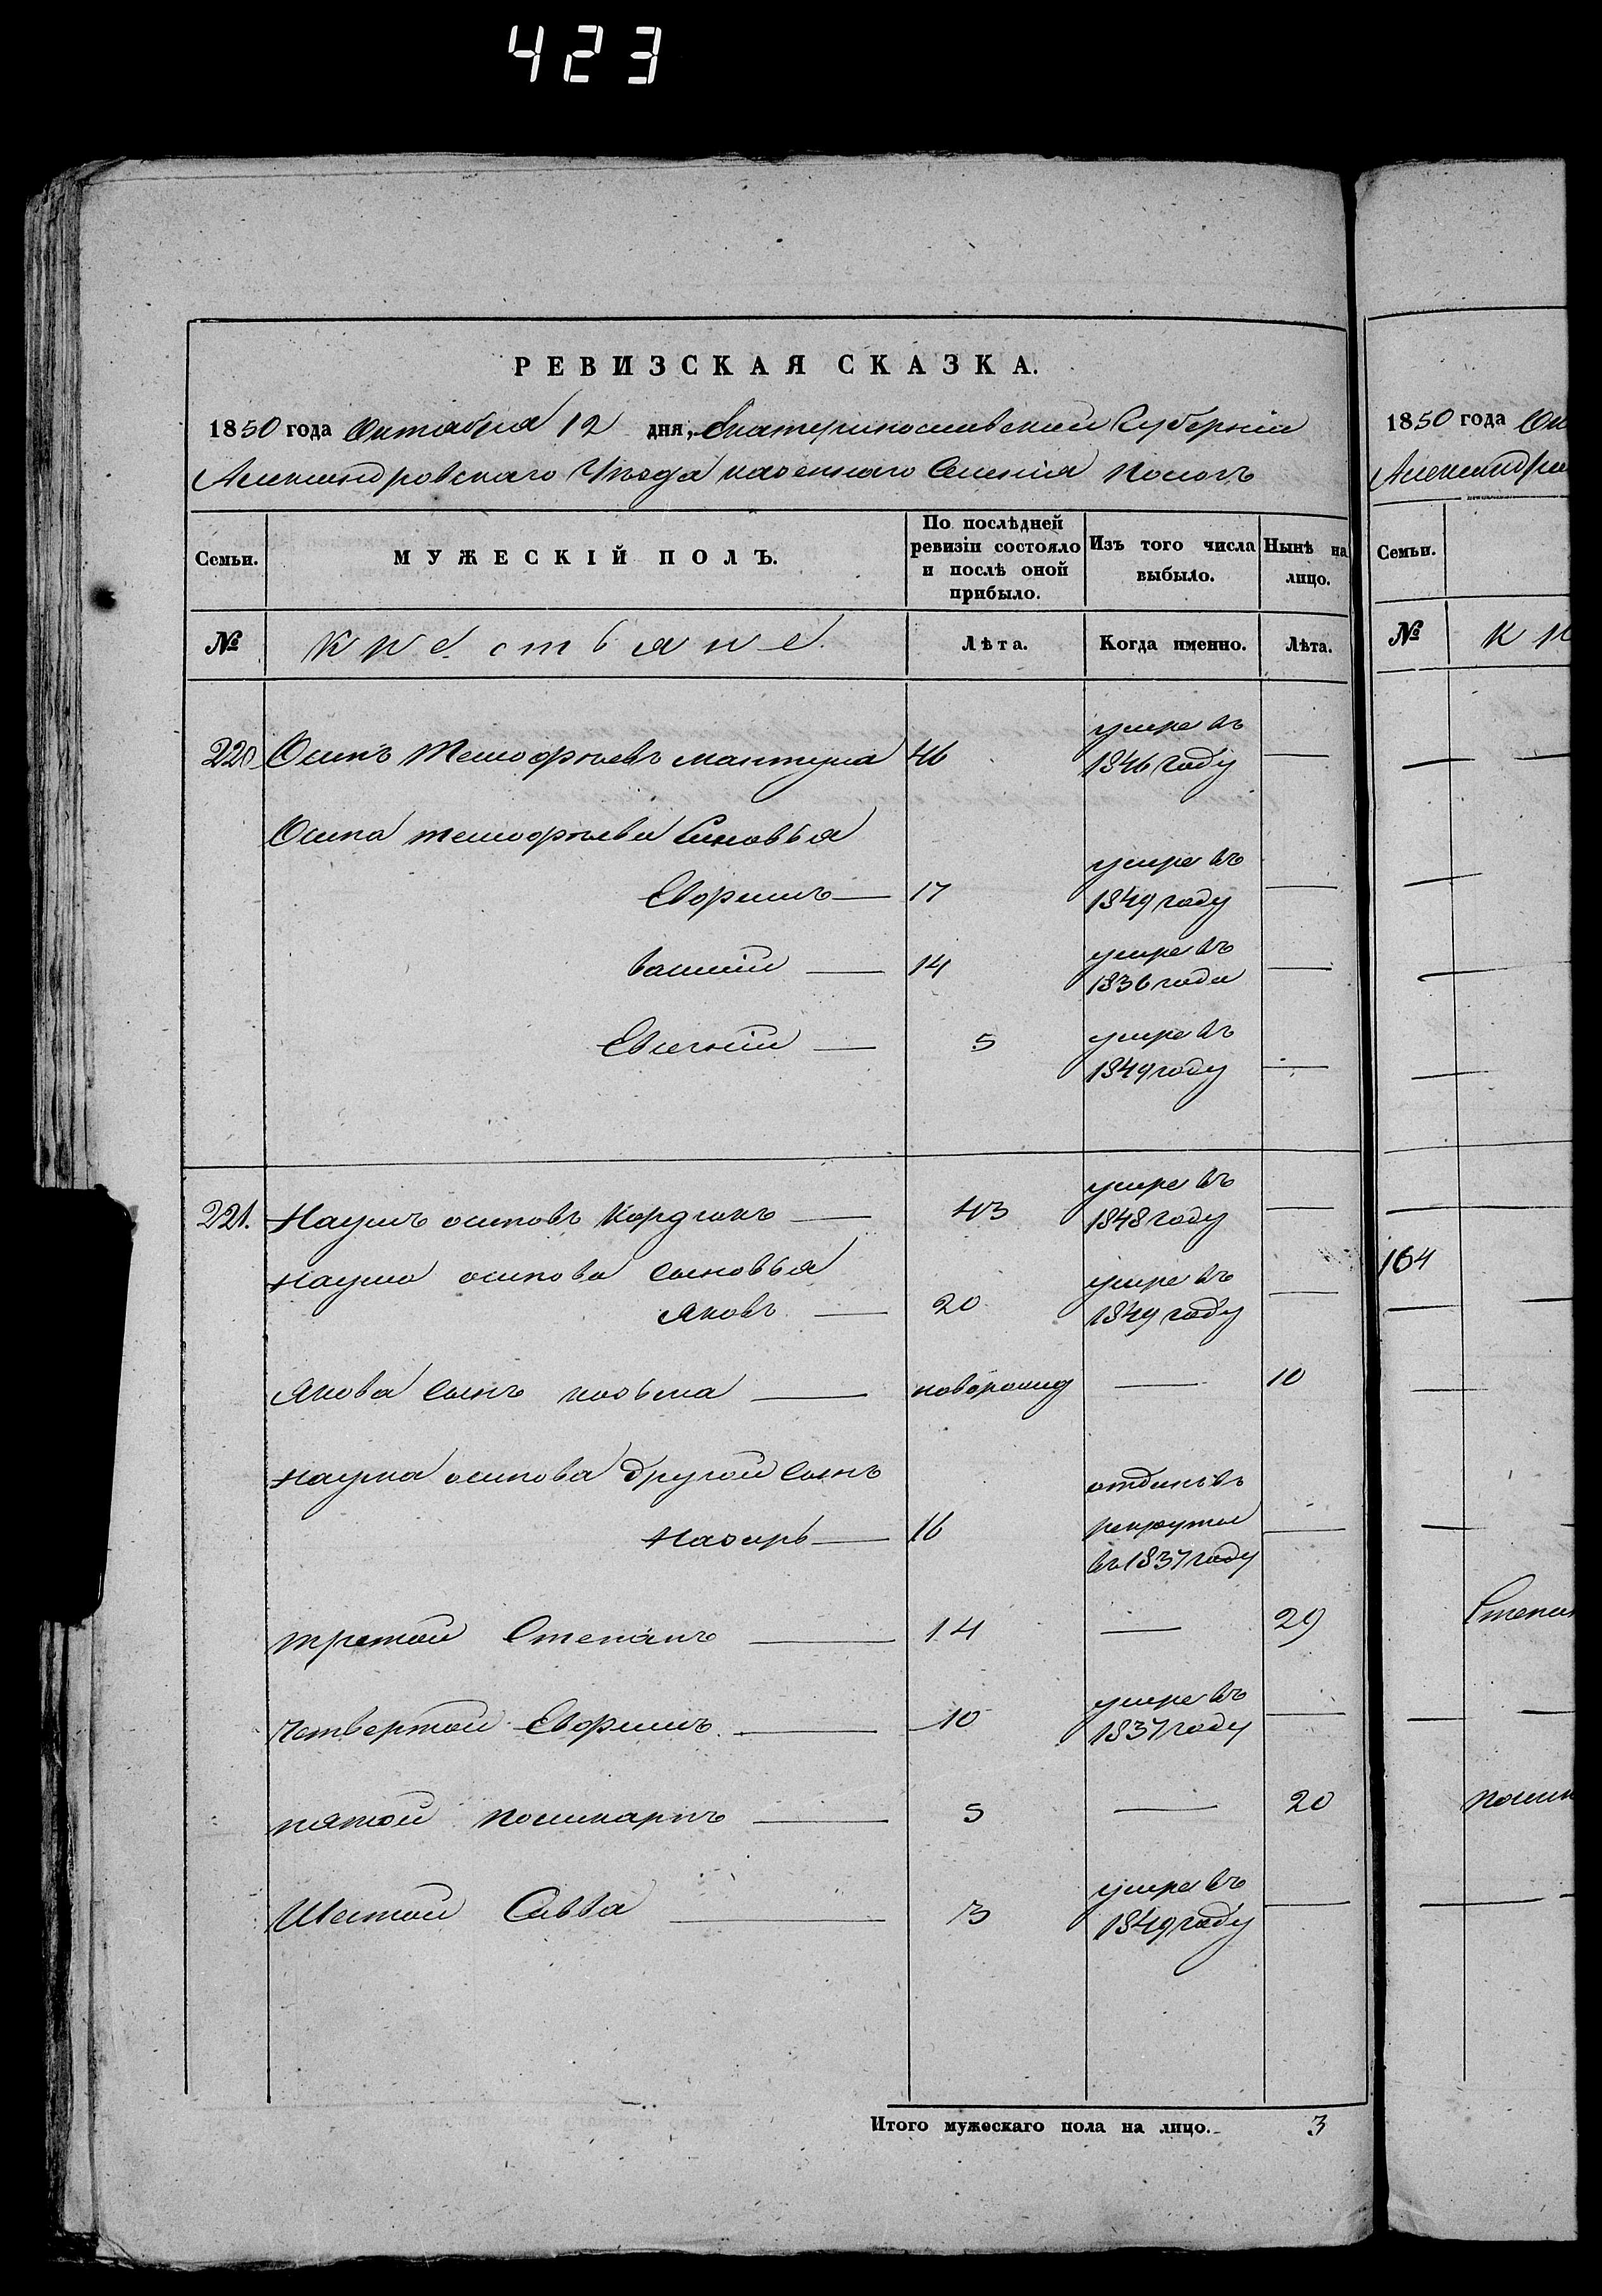 423
РЕВИЗСКАЯ СКАЗКА.
1850 года Октября 12 дня, Екатеринославской Губернии
Александровскаго Уѣзда казеннаго Селенія Пологъ
Семьи.
МУЖЕСКІЙ ПОЛЪ.
По послѣдней ревизіи состояло и послѣ оной прибыло.
Изъ того числа выбыло.
Нынѣ на лицо.
№ Крестьяне. Лѣта. Когда именно. Лѣта.
220 Осипъ Тимофѣевъ мантула 46 умре въ 1846 году —
Осипа тимофѣева Синовья
Ефримъ — 17 умре въ 1849 году —
василій — 14 умре въ 1836 года —
Евгеній — 5 умре въ 1849 году —
221. Наумъ осиповъ Кордюкъ — 43 умре въ 1848 году —
Наума осипова сыновья
Яковъ — 20 умре въ 1849 году —
Якова сынъ козьма — доворожд — 10
Наума осипова другой сынъ
Назаръ — 16 отданъ въ рекруты въ 1837 году —
третой Степанъ — 14 — 29
Четвертой Ефримъ. — 10 умре въ 1837 году —
пятой поликарпъ — 5 — 20
Шестой Савва — 3 умре въ 1849 году —
Итого мужескаго пола на лицо. 3
1850 года Ок
Александров
Семьи.
№ К р
164
Степан
поли